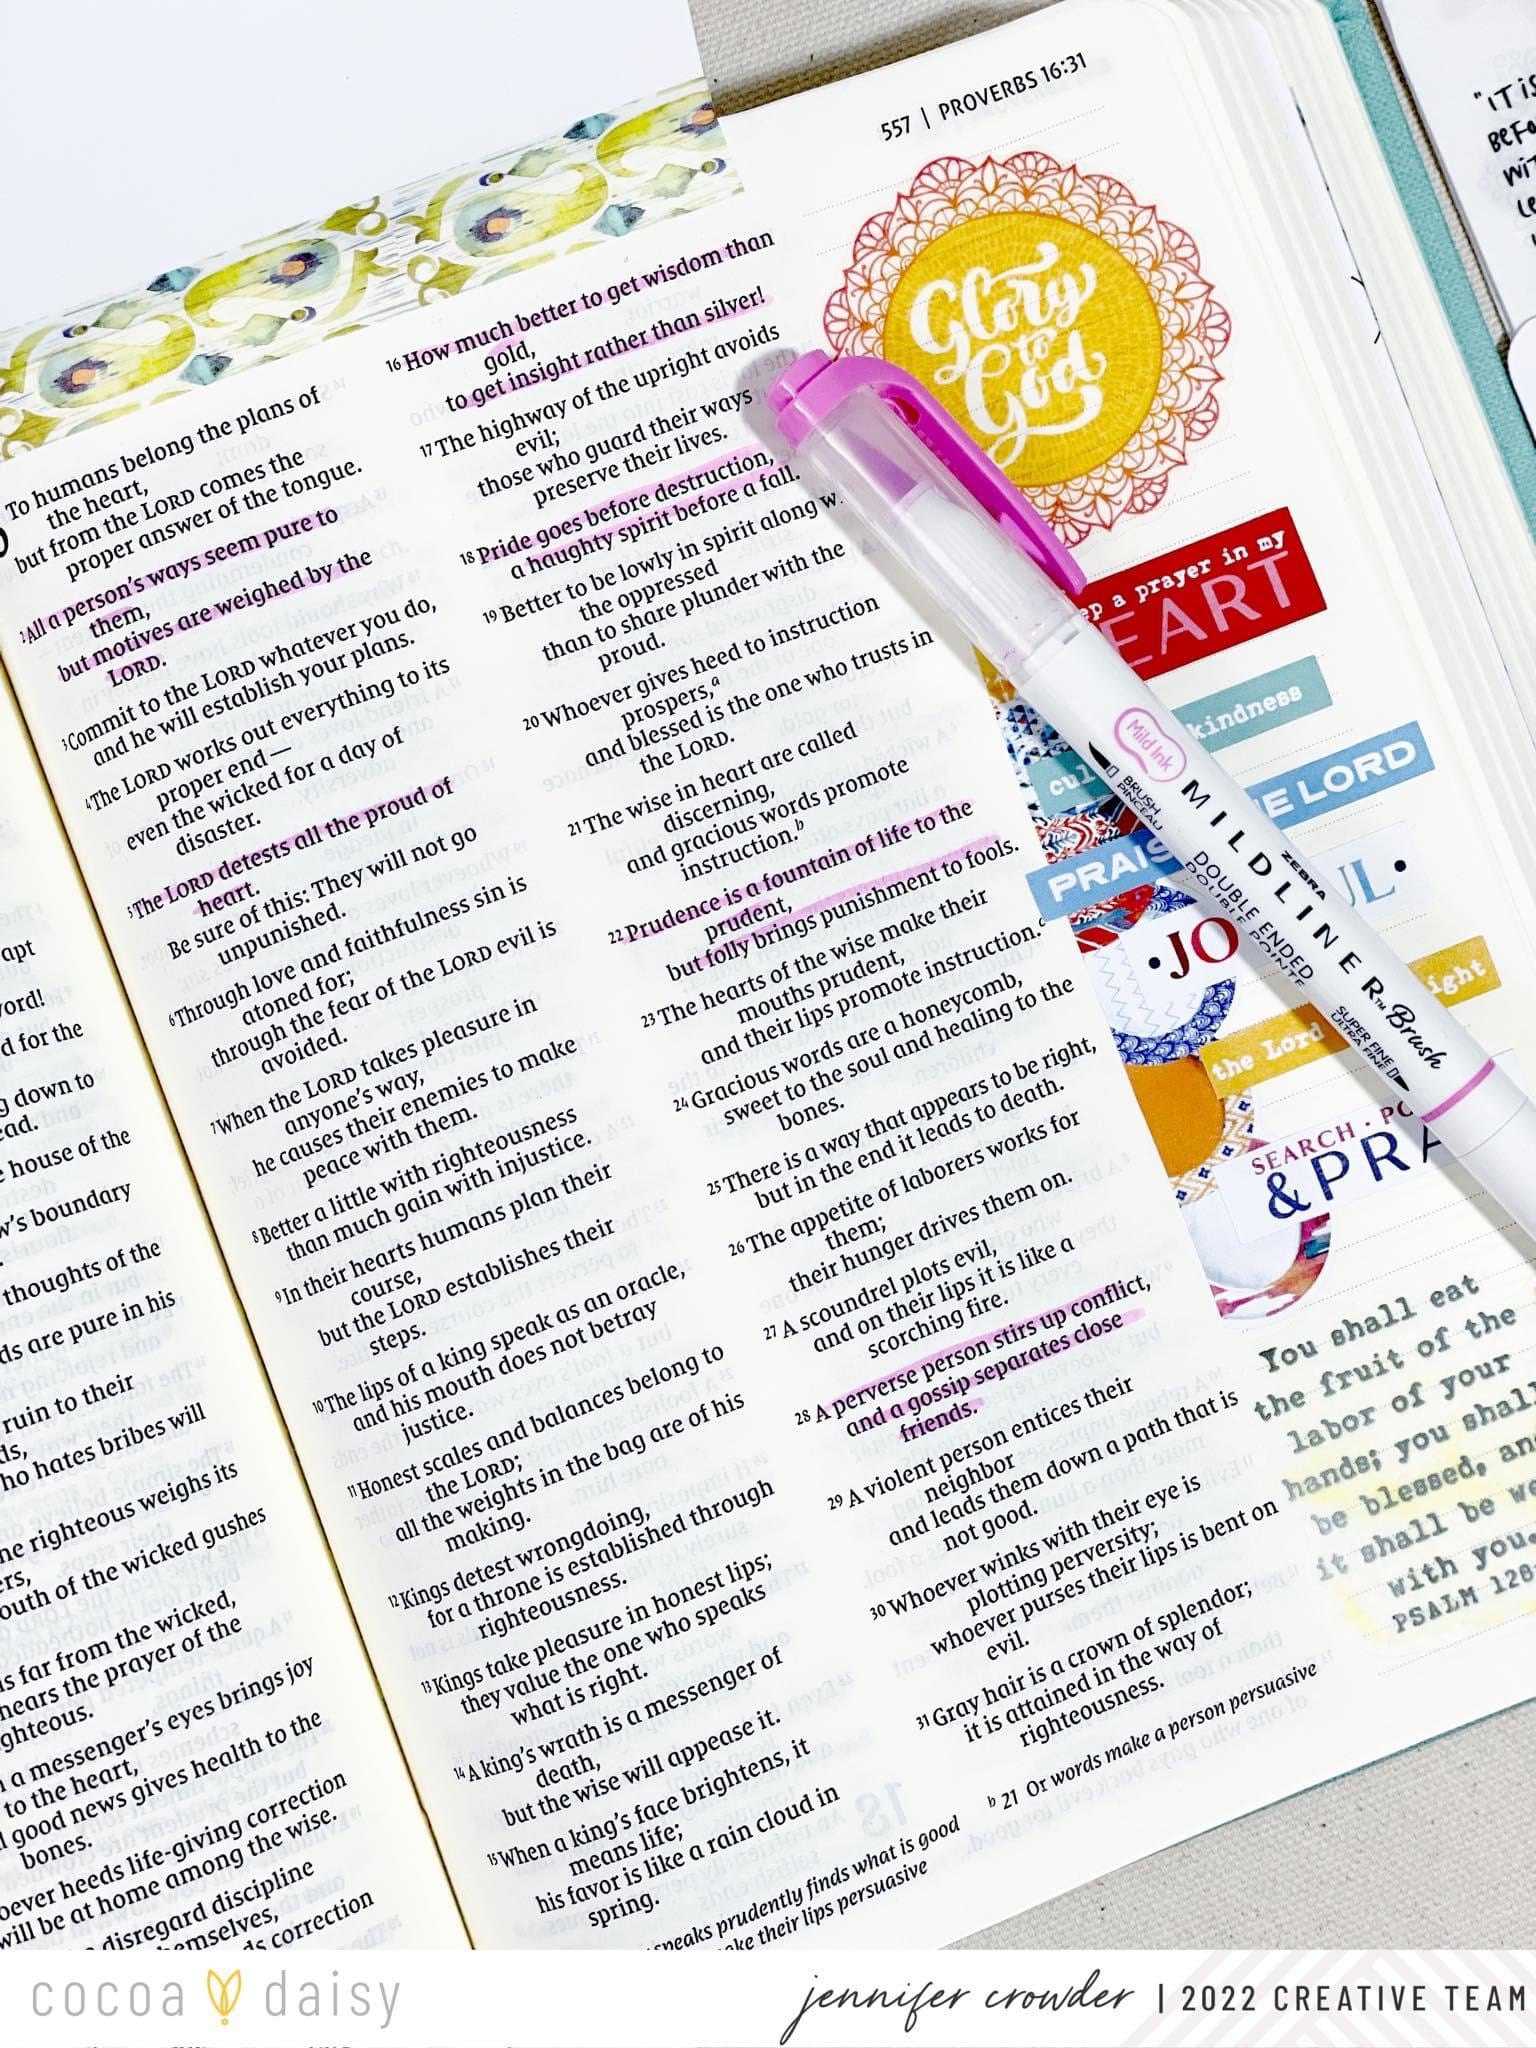 557 | PROVERBS 16:31
Glory
to
God
To humans belong the plans of
the heart,
but from the LORD comes the
proper answer of the tongue.
2 All a person's ways seem pure to
them,
but motives are weighed by the
LORD.
3 Commit to the LORD whatever you do,
and he will establish your plans.
4 The LORD works out everything to its
proper end —
even the wicked for a day of
disaster.
5 The LORD detests all the proud of
heart.
Be sure of this: They will not go
unpunished.
6 Through love and faithfulness sin is
atoned for;
through the fear of the LORD evil is
avoided.
7 When the LORD takes pleasure in
anyone's way,
he causes their enemies to make
peace with them.
8 Better a little with righteousness
than much gain with injustice.
9 In their hearts humans plan their
course,
but the LORD establishes their
steps.
10 The lips of a king speak as an oracle,
and his mouth does not betray
justice.
11 Honest scales and balances belong to
the LORD;
all the weights in the bag are of his
making.
12 Kings detest wrongdoing,
for a throne is established through
righteousness.
13 Kings take pleasure in honest lips;
they value the one who speaks
what is right.
14 A king's wrath is a messenger of
death,
but the wise will appease it.
15 When a king's face brightens, it
means life;
his favor is like a rain cloud in
spring.
16 How much better to get wisdom than
gold,
to get insight rather than silver!
17 The highway of the upright avoids
evil;
those who guard their ways
preserve their lives.
18 Pride goes before destruction,
a haughty spirit before a fall.
19 Better to be lowly in spirit along
the oppressed
than to share plunder with the
proud.
20 Whoever gives heed to instruction
prospers,a
and blessed is the one who trusts in
the LORD.
21 The wise in heart are called
discerning,
and gracious words promote
instruction.b
22 Prudence is a fountain of life to the
prudent,
but folly brings punishment to fools.
23 The hearts of the wise make their
mouths prudent,
and their lips promote instruction.c
24 Gracious words are a honeycomb,
sweet to the soul and healing to the
bones.
25 There is a way that appears to be right,
but in the end it leads to death.
26 The appetite of laborers works for
them;
their hunger drives them on.
27 A scoundrel plots evil,
and on their lips it is like a
scorching fire.
28 A perverse person stirs up conflict,
and a gossip separates close
friends.
29 A violent person entices their
neighbor
and leads them down a path that is
not good.
30 Whoever winks with their eye is
plotting perversity;
whoever purses their lips is bent on
evil.
31 Gray hair is a crown of splendor;
it is attained in the way of
righteousness.
b 21 Or words make a person persuasive
speaks prudently finds what is good
their lips persuasive
apt
word!
d for the
g down to
house of the
's boundary
thoughts of the
ds are pure in his
ruin to their
ho hates bribes will
he righteous weighs its
outh of the wicked gushes
is far from the wicked,
hears the prayer of the
ghteous.
a messenger's eyes brings joy
to the heart,
good news gives health to the
bones.
oever heeds life-giving correction
will be at home among the wise.
disregard discipline
hemselves,
ds correction
ep a prayer in my
EART
cul kindness
PRAIS E LORD
JO UL
the Lord ight
SEARCH · PO
& PRA
You shall eat
the fruit of the
labor of your
hands; you shall
be blessed, and
it shall be we
with you.
PSALM 128:
Mild Ink
BRUSH
PINCEAU
MILDLINER™ Brush
ZEBRA
DOUBLE ENDED
DOUBLE POINTE
SUPER FINE
ULTRA FINE
"IT IS
BEFO
WIT
LE
cocoa daisy
jennifer crowder | 2022 CREATIVE TEAM